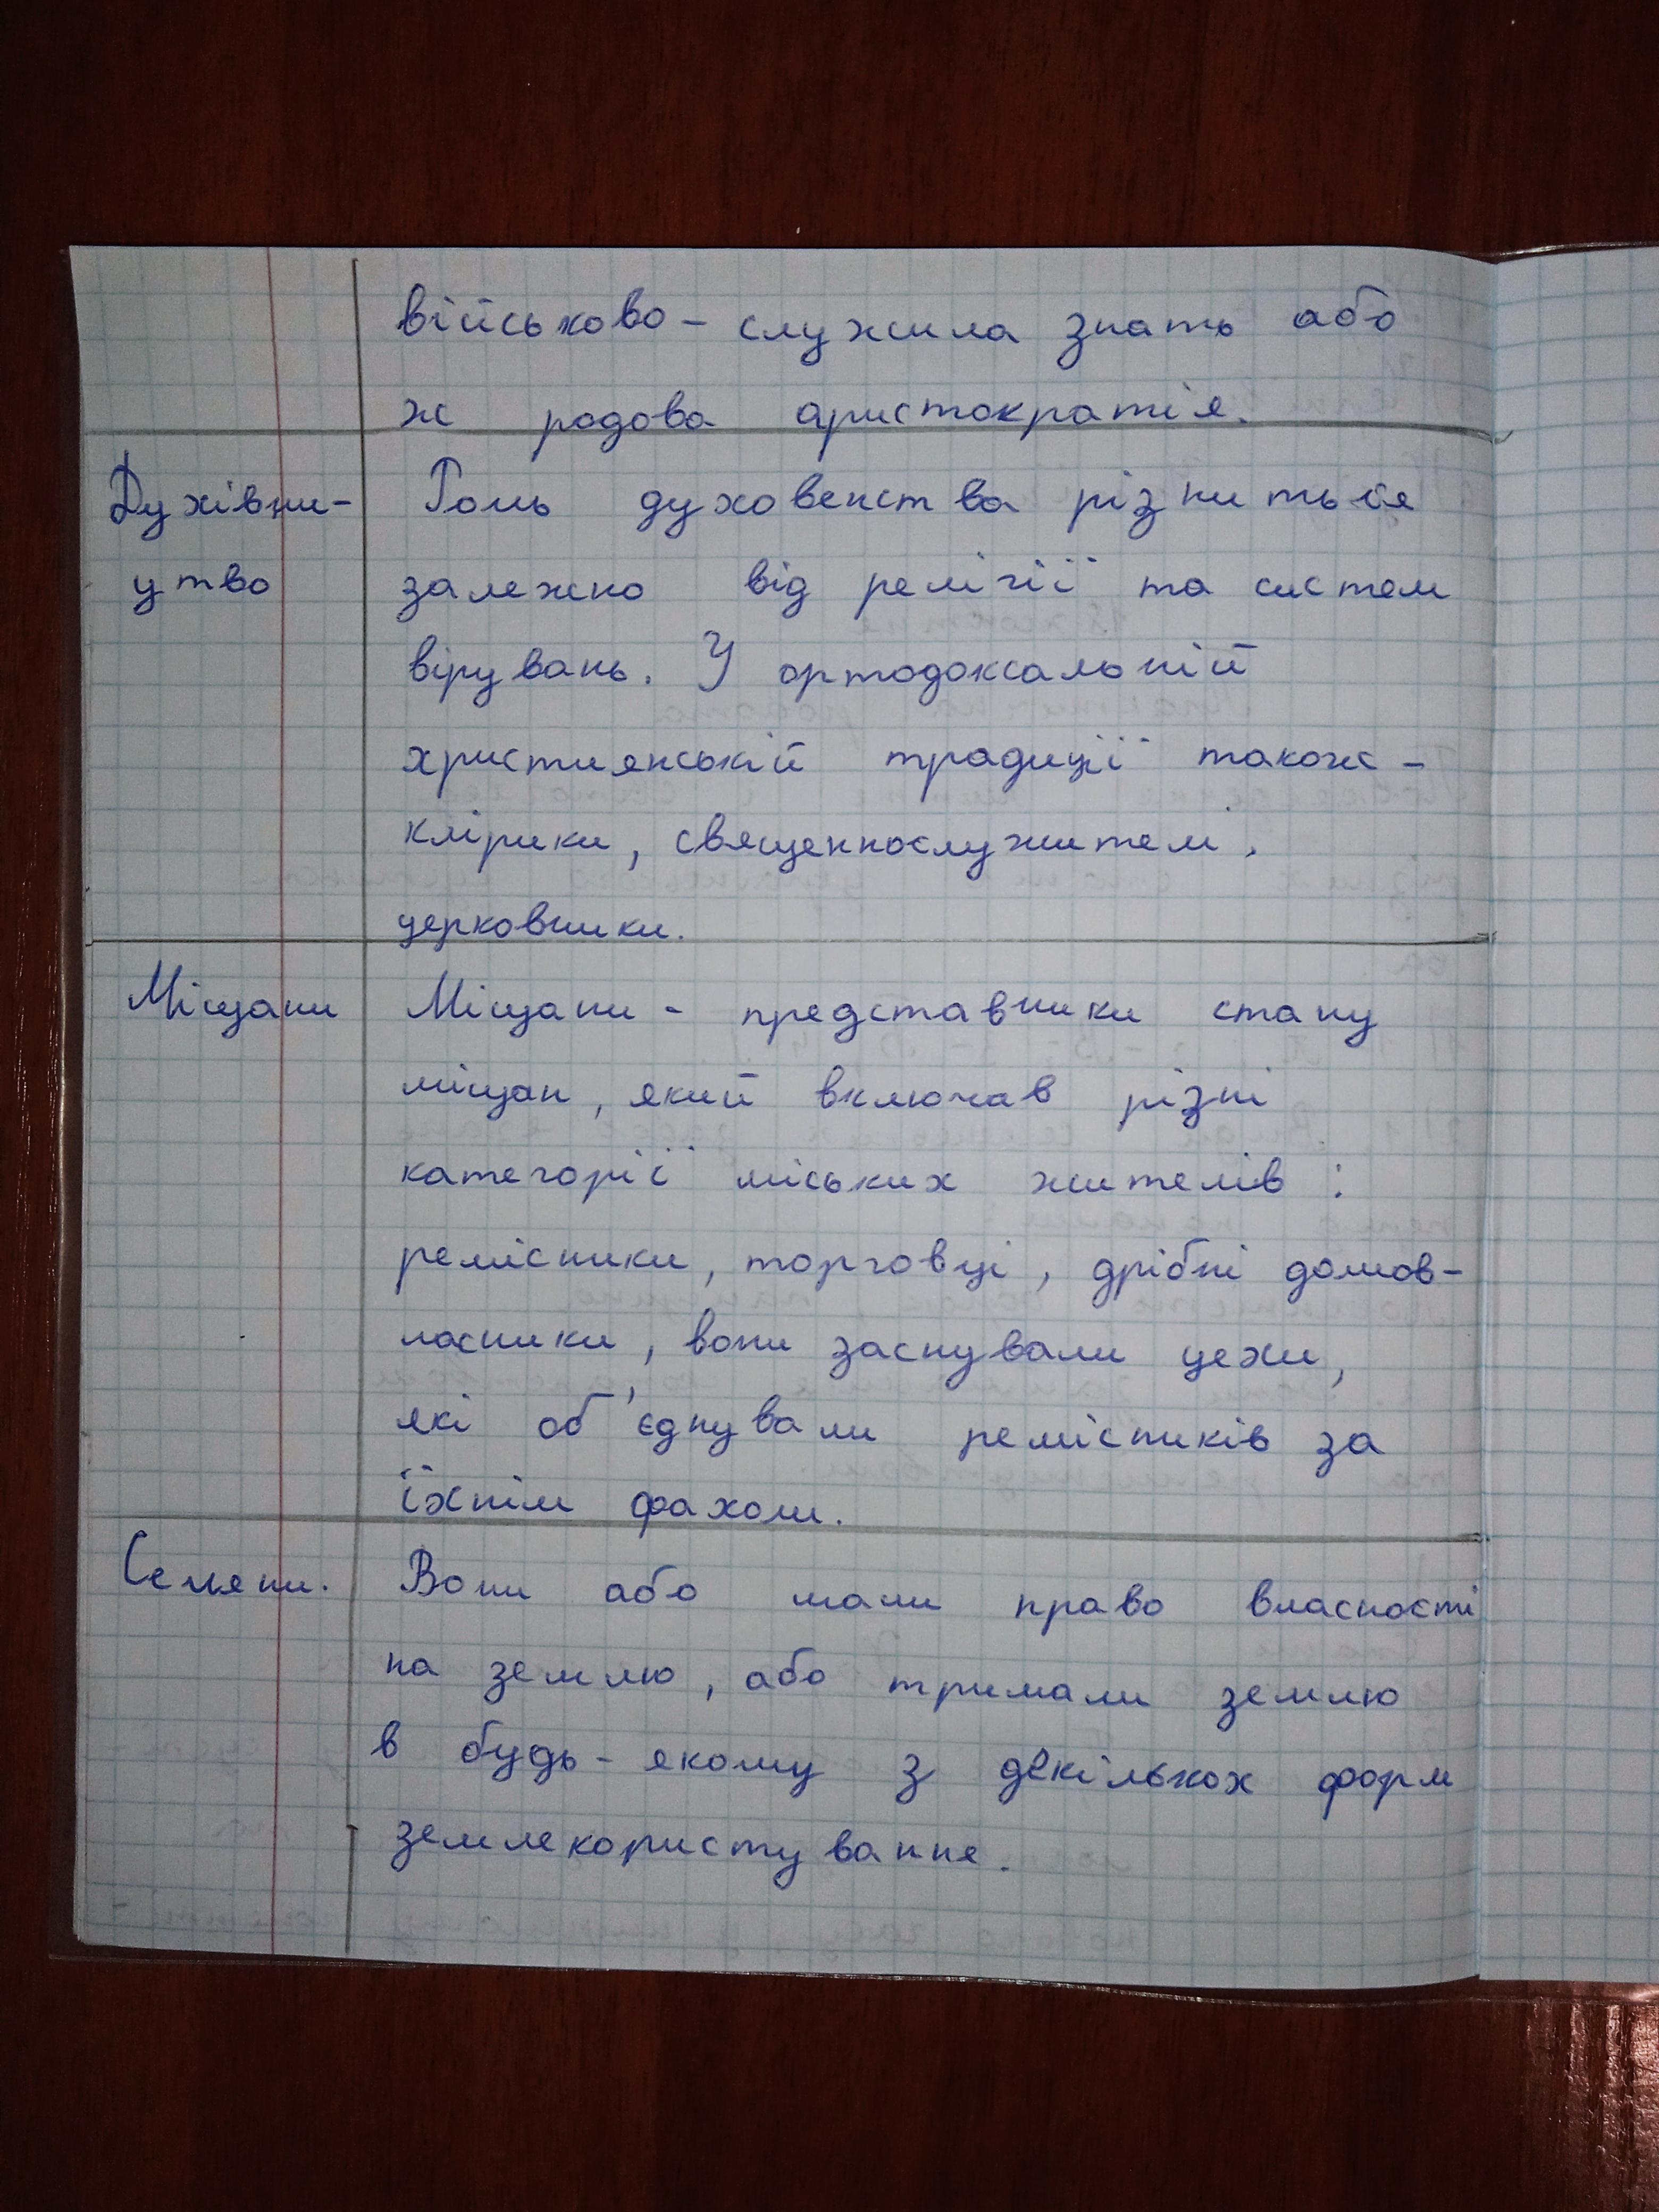 військово - служила знать або
ж родова аристократія.
Духівни-
цтво
Роль духовенства різниться
залежно від релігії та систем
вірувань. У ортодоксальній
християнській традиції також -
клірики, священнослужителі,
церковники.
Міщани
Міщани - представники стану
міщан, який включав різні
категорії міських жителів:
ремісники, торговці, дрібні домов-
ласники, вони заснували цехи,
які об'єднували ремісників за
їхнім фахом.
Селяни.
Вони або мали право власності
на землю, або тримали землю
в будь-якому з декількох форм
землекористування.